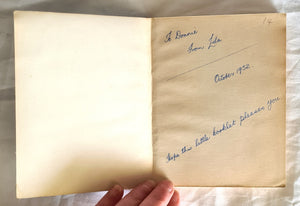 1/4
To Donnie
from Lila
October 1952.
Hope this little booklet pleases you.